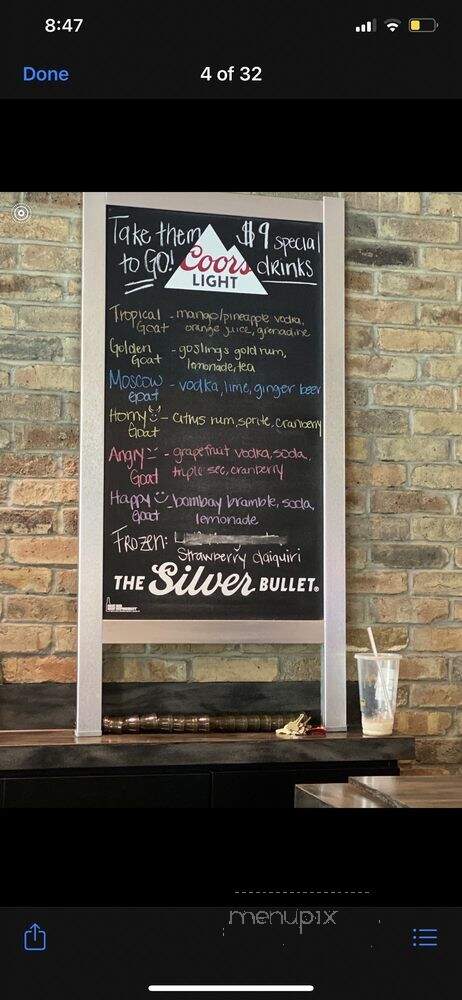 8:47
Done
4 of 32
Take them
to GO!
$9 special
drinks
Coors
LIGHT
Tropical Goat - mango/pineapple vodka,
orange juice, grenadine
Golden Goat - goslings gold rum,
lemonade, tea
Moscow goat - vodka, lime, ginger beer
Horny Goat - citrus rum, sprite, cranberry
Angry Goat - grapefruit vodka, soda,
triple sec, cranberry
Happy goat - bombay bramble, soda,
lemonade
FROZEN:
Strawberry daiquiri
THE Silver BULLET®
menupix